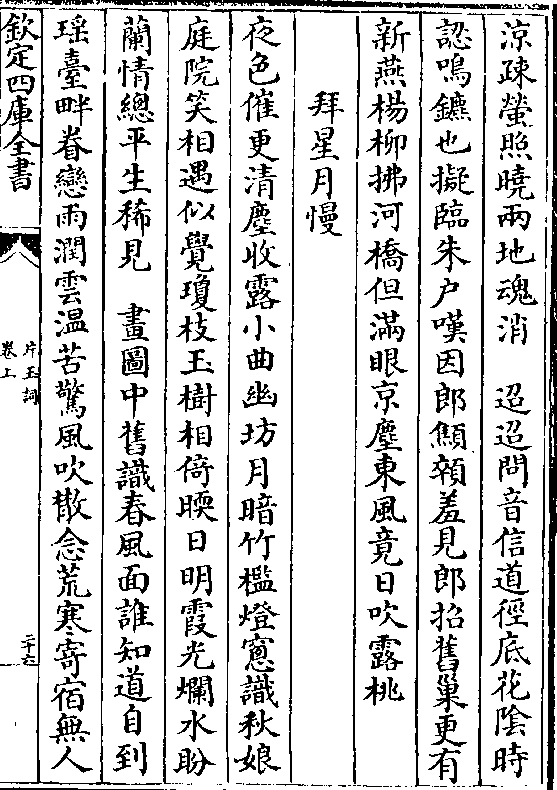 涼疎螢照曉兩地魂消　迢迢問音信道徑底花陰時
認鳴鑣也擬臨朱户嘆因郎顦顇羞見郎招舊巢更有
新燕楊柳拂河橋但滿眼京塵東風竟日吹露桃
拜星月慢
夜色催更清塵收露小曲幽坊月暗竹檻燈窻識秋娘
庭院笑相遇似覺瓊枝玉樹相倚暎日明霞光爛水盼
蘭情總平生稀見　畫圖中舊識春風面誰知道自到
瑶臺畔眷戀雨潤雲温苦驚風吹散念荒寒寄宿無人
欽定四庫全書
片玉詞
卷上
二十六